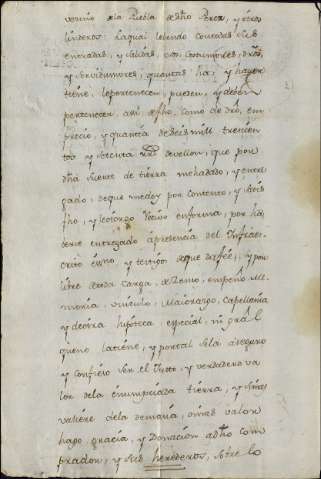 vecino de la Puebla de dho Perez, y otros
linderos. La qual le bendo con todas sus
entradas, y salidas, usos, costumbres, dros,
y servidumbres, quantas ha, y haver
tiene, le pertenecen, pueden, y deben
pertenecer, asi de fho, como de dro, en
precio, y quantia de seis mill trecien
tos y setenta rs de vellon, que por
dha suerte de tierra me ha dado, y entre
gado, de que me doy por contento, y satis
fho, y le otorgo recivo en forma, por ha
verse entregado a presencia del Infraes
crito essno, y testigos de que da fee, y por
libre de toda carga, de zenso, empeño, me
moria, vinculo, Maiorazgo, Capellania
y de otra hipoteca especial, ni gral
que no la tiene, y por tal se la aseguro
y confieso ser el justo, y verdadero va
lor de la enunpciada tierra, y si mas
valiere de la demasia, o mas valor
hago gracia, y Donacion a dho com
prador, y sus herederos, sobre lo